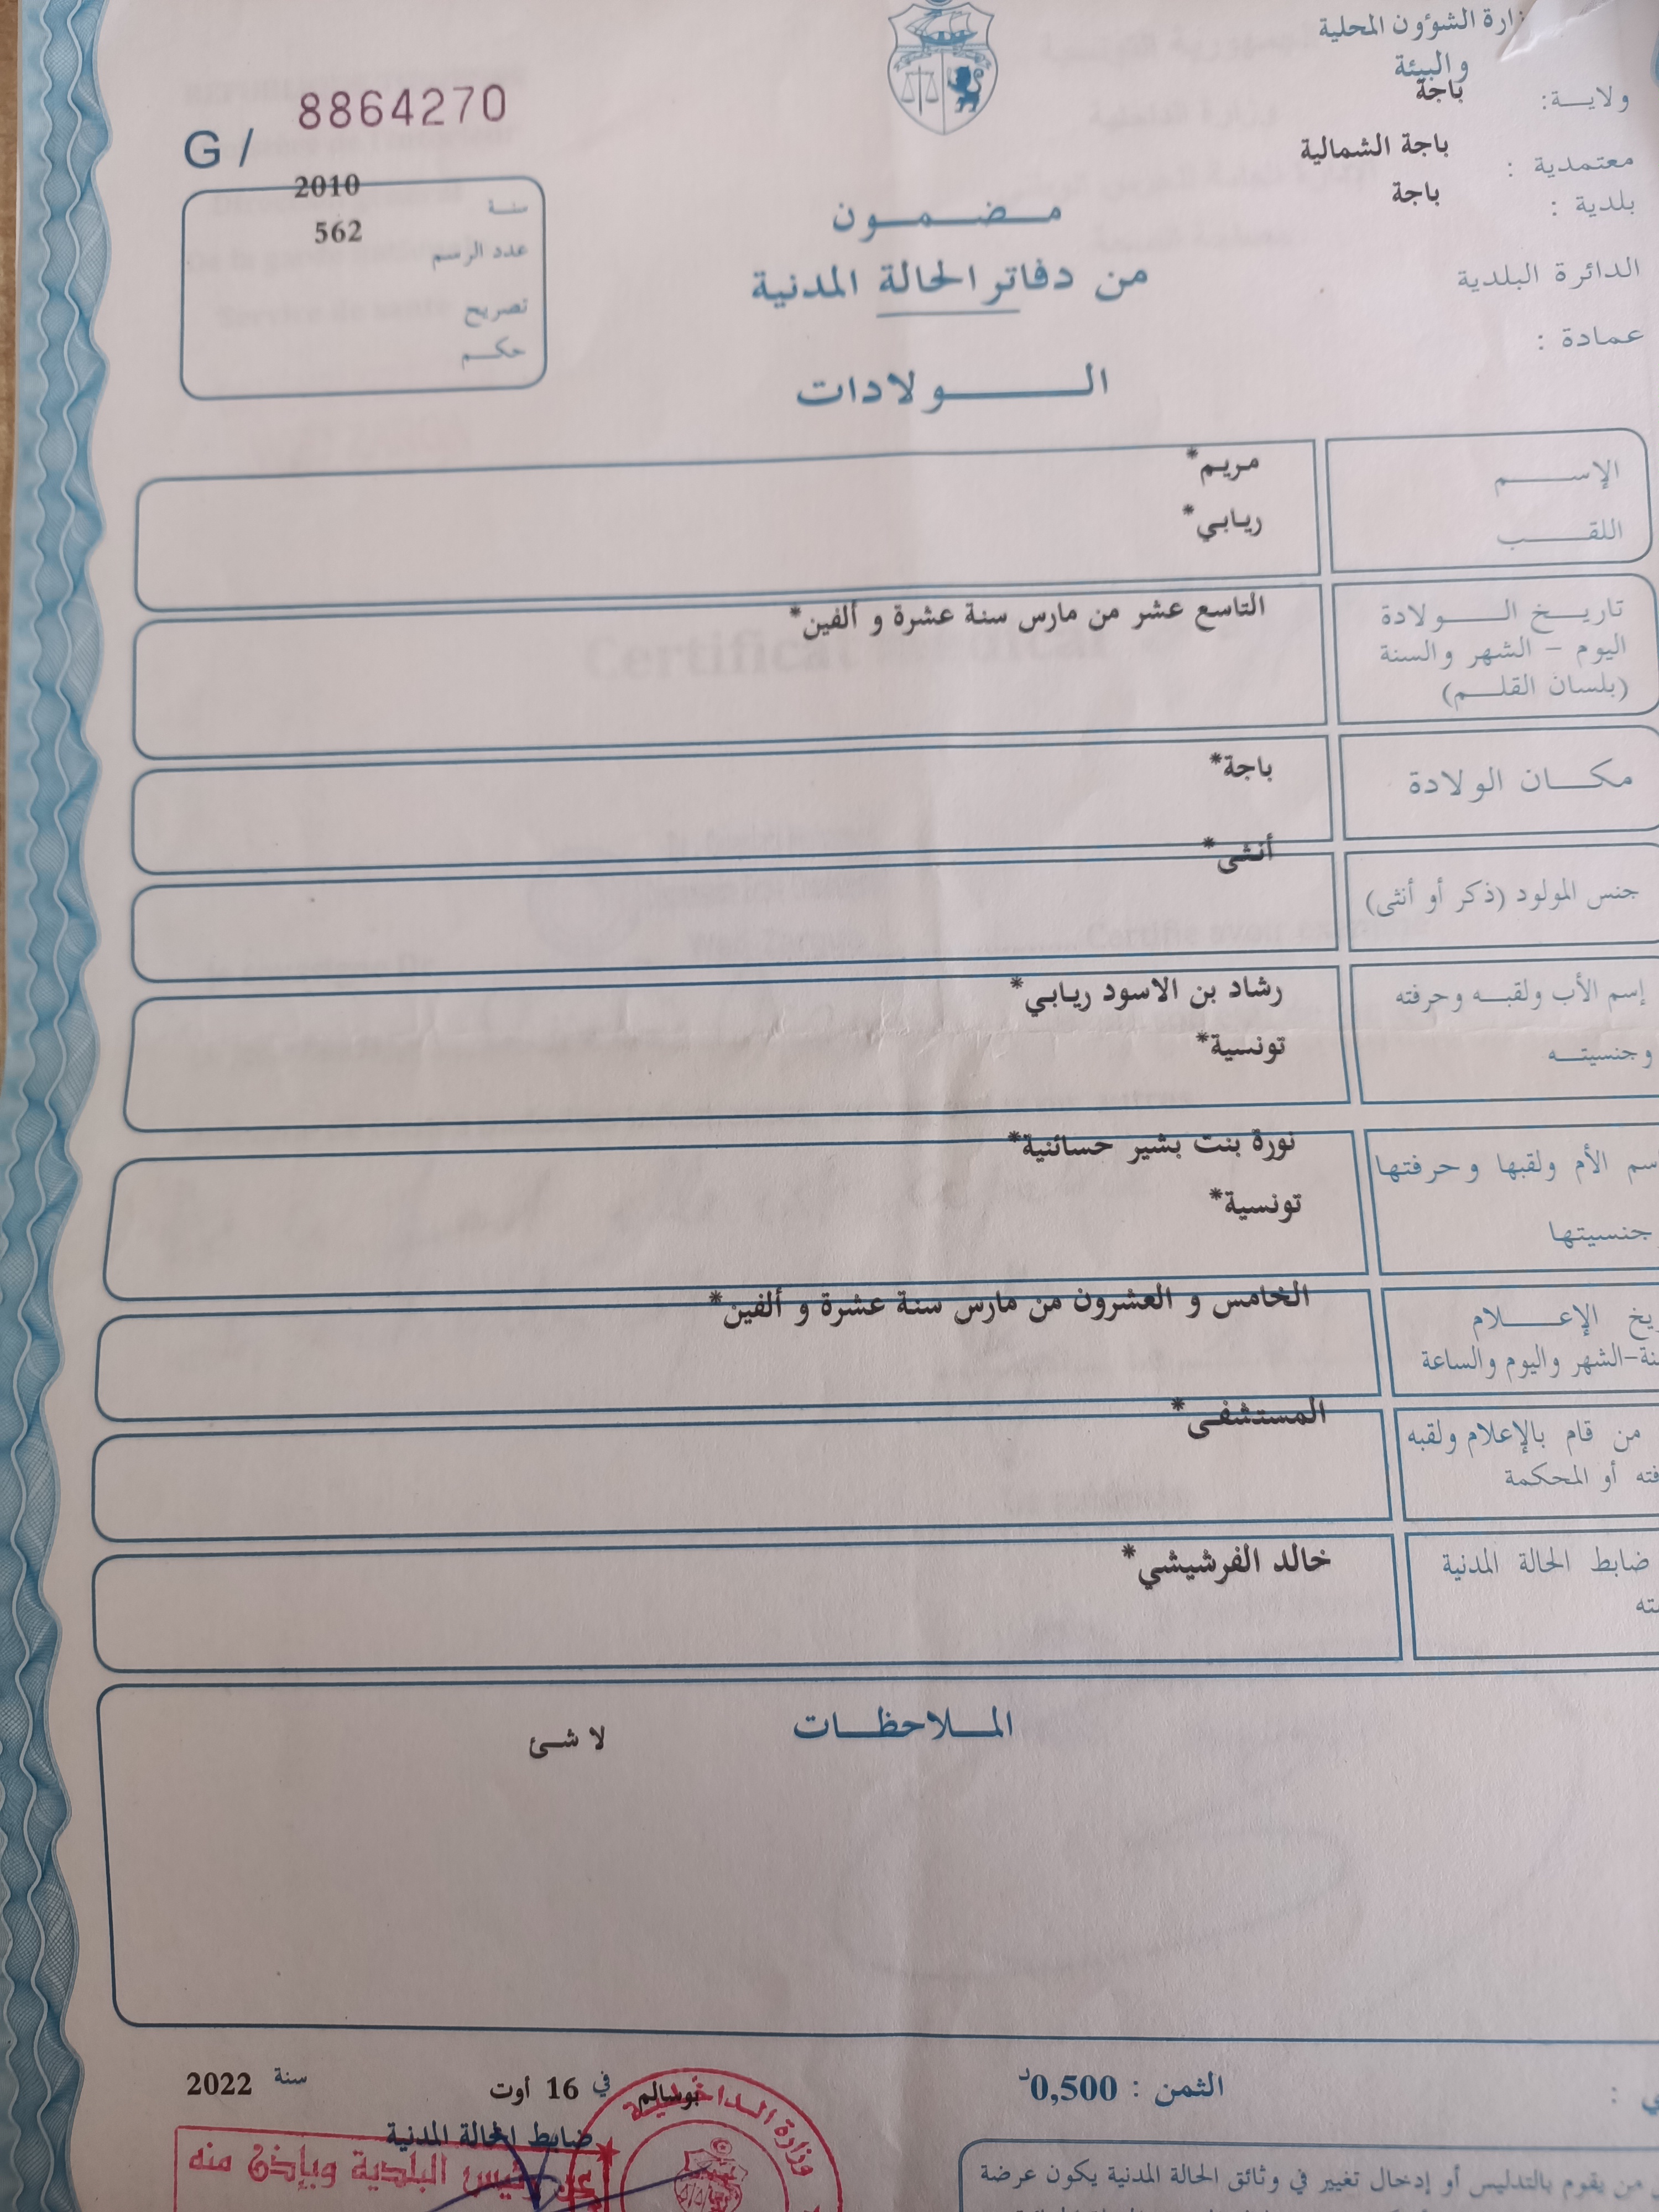 وزارة الشؤون المحلية
والبيئة
ولاية: باجة
معتمدية : باجة الشمالية
بلدية : باجة
الدائرة البلدية
عمادة :
G / 8864270
سنة 2010
عدد الرسم 562
تصريح
حكم
مضمون
من دفاتر الحالة المدنية
الولادات
الإسم مريم*
اللقب ريابي*
تاريخ الولادة التاسع عشر من مارس سنة عشرة و ألفين*
اليوم - الشهر والسنة
(بلسان القلم)
مكان الولادة باجة*
جنس المولود (ذكر أو أنثى) أنثى*
إسم الأب ولقبه وحرفته رشاد بن الاسود ريابي*
وجنسيته تونسية*
سم الأم ولقبها وحرفتها نورة بنت بشير حسائنية*
جنسيتها تونسية*
يخ الإعلام الخامس و العشرون من مارس سنة عشرة و ألفين*
نة-الشهر واليوم والساعة
من قام بالإعلام ولقبه المستشفى*
فته أو المحكمة
ضابط الحالة المدنية خالد الفرشيشي*
ته
الملاحظات
لا شئ
الثمن : 0,500د
بوسالم في 16 أوت سنة 2022
ضابط الحالة المدنية
وزارة الداخلية
عن رئيس البلدية وبإذن منه
من يقوم بالتدليس أو إدخال تغيير في وثائق الحالة المدنية يكون عرضة